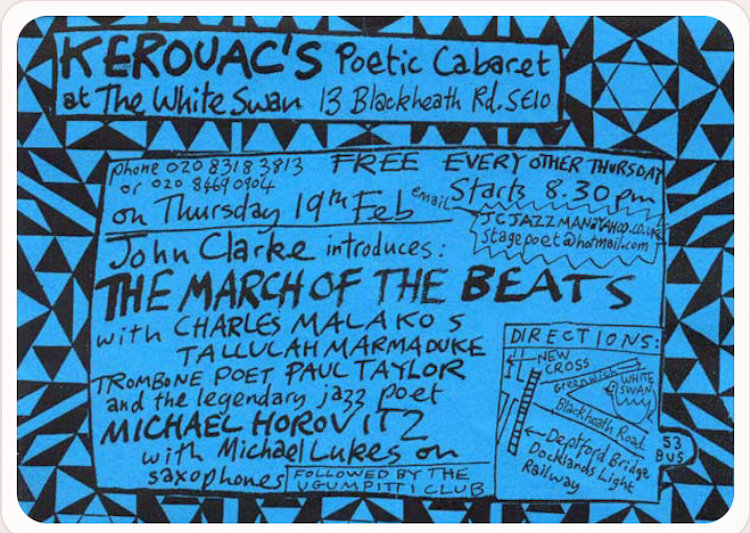 KEROUAC'S Poetic Cabaret
at The White Swan 13 Blackheath Rd. SE10
phone 020 8318 3813
or 020 8469 0904
FREE EVERY OTHER THURSDAY
Starts 8.30pm
on Thursday 19th Feb
email
JCJAZZMAN@YAHOO.CO.UK
stagepoet@hotmail.com
John Clarke introduces:
THE MARCH OF THE BEATS
with CHARLES MALAKOS
TALLULAH MARMADUKE
TROMBONE POET PAUL TAYLOR
and the legendary jazz poet
MICHAEL HOROVITZ
with Michael Lukes on
saxophones
FOLLOWED BY THE
UGUMPITTI CLUB
DIRECTIONS:
NEW
CROSS
Greenwich
WHITE
SWAN
Blackheath Road
53
BUS
Deptford Bridge
Docklands Light
Railway